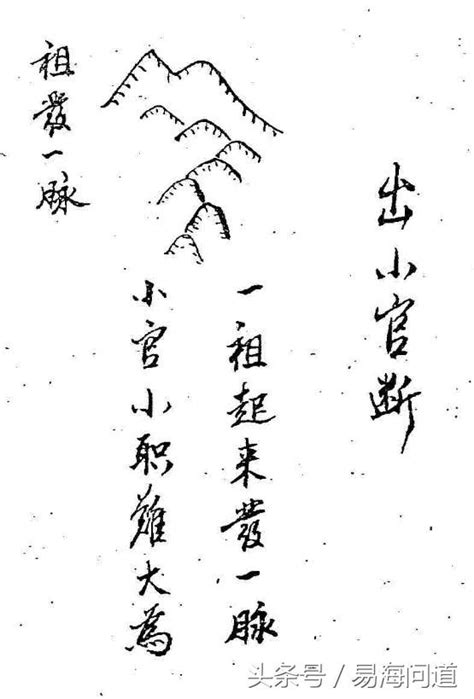 出小官断
一祖起来發一脉
小官小职難大為
祖發一脉
头条号 / 易海问道